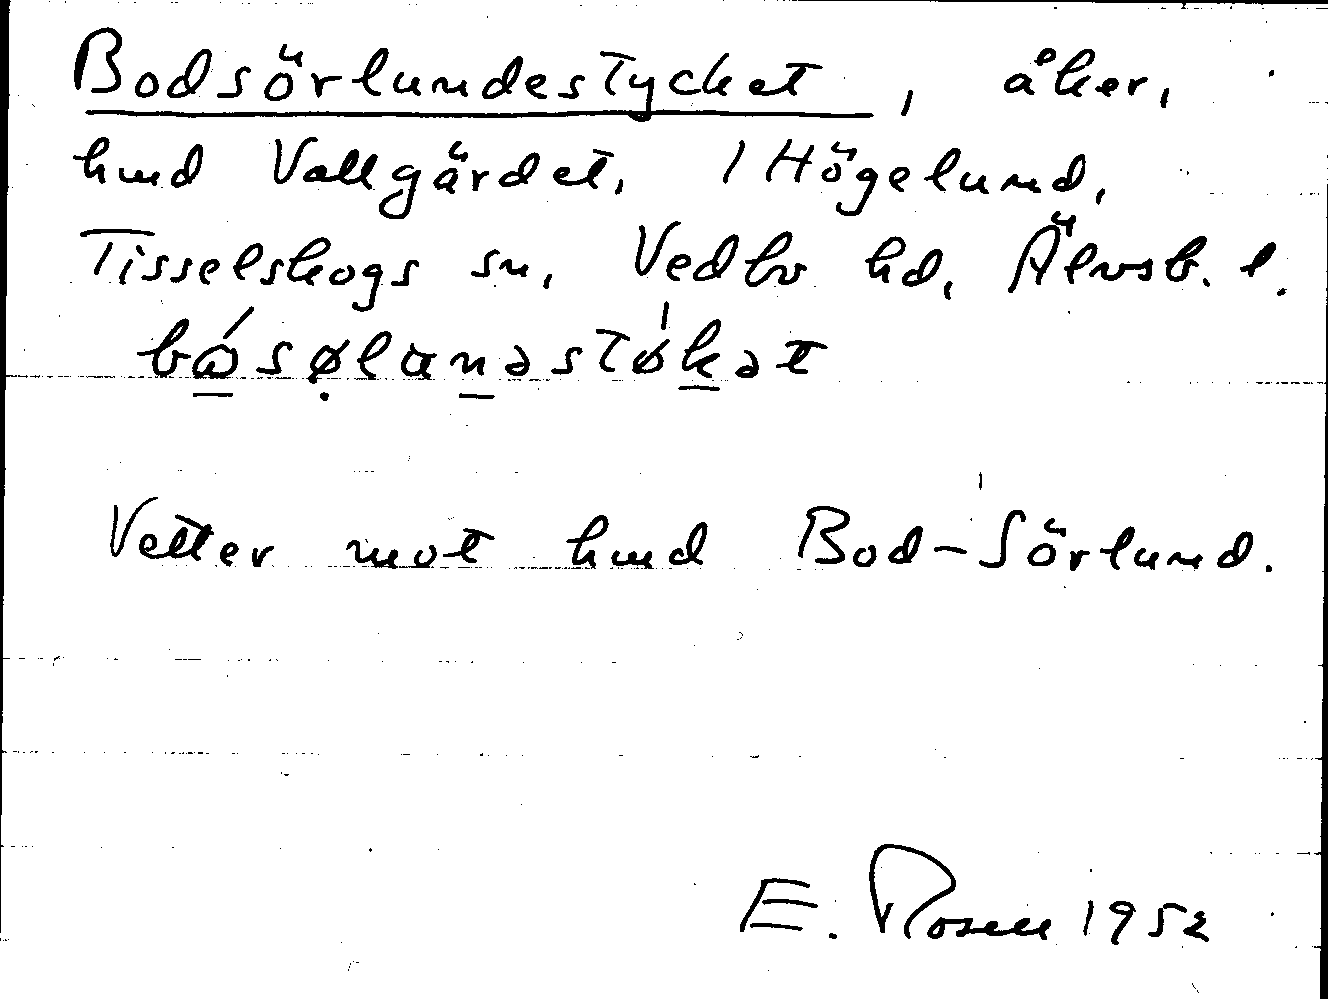 Bodsörlundestycket, åker,
hmd Vallgärdet, 1 Högelund,
Tisselskogs sn, Vedbo hd, Älvsb. l.
båsølanəstøkət
Vetter mot hmd Bod-Sörlund.
E. Rosell 1952